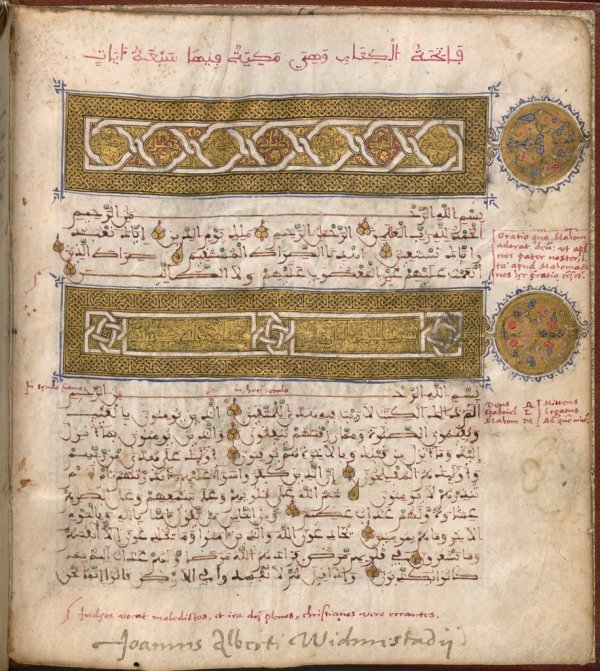 فاتحة الكتاب وهي مكية فيها سبعة ايات
بسم الله الرحمن الرحيم
الحمد لله رب العلمين الرحمن الرحيم ملك يوم الدين اياك نعبد
واياك نستعين اهدنا الصراط المستقيم صراط الذين
انعمت عليهم غير المغضوب عليهم ولا الضالين
Oratio qua Mahom
adorat deū, ut apud
nos pater noster, i
ta apud Mahometa
nos hęc oratio
بسم الله الرحمن الرحيم
الم ذلك الكتب لا ريب فيه هدى للمتقين الذين يومنون بالغيب
ويقيمون الصلوة ومما رزقنهم ينفقون والذين يومنون بما انزل
اليك وما انزل من قبلك وبالاخرة هم يوقنون اوليك على هدى من ربهم
واوليك هم المفلحون ان الذين كفروا سواء عليهم ءانذرتهم ام لم
تنذرهم لا يومنون ختم الله على قلوبهم وعلى سمعهم وعلى ابصرهم
غشوة ولهم عذاب عظيم ومن الناس من يقول امنا بالله وباليوم
الاخر وما هم بمومنين يخدعون الله والذين امنوا وما يخدعون الا انفسهم
وما يشعرون في قلوبهم مرض فزادهم الله مرضا ولهم عذاب اليم بما
كانوا يكذبون واذا قيل لهم لا تفسدوا في الارض قالوا انما نحن
Deus A Mittens
Gabriel L Legatus
Mahom M Ad quem
Judęos vocat maledictos, et ira dei plenos, christianos vero errantes.
Joannis Alberti Widmestadij